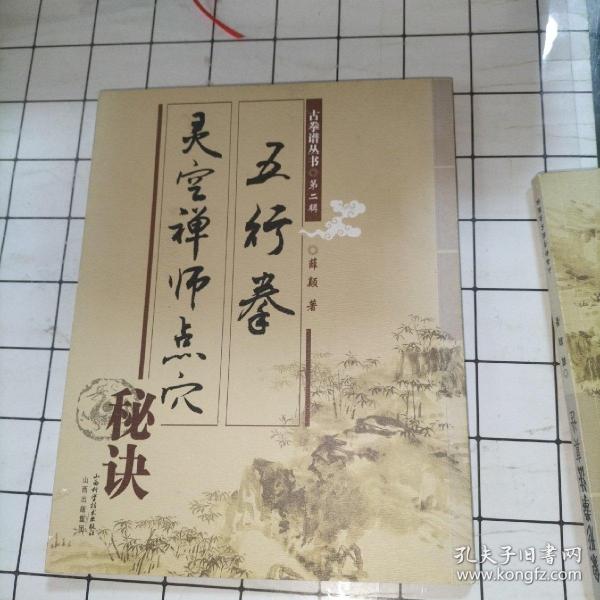 古拳谱丛书
第二辑
薛颠 著
五行拳
灵空禅师点穴
秘诀
山西科学技术出版社
山西出版集团
孔夫子旧书网
www.kongfz.com